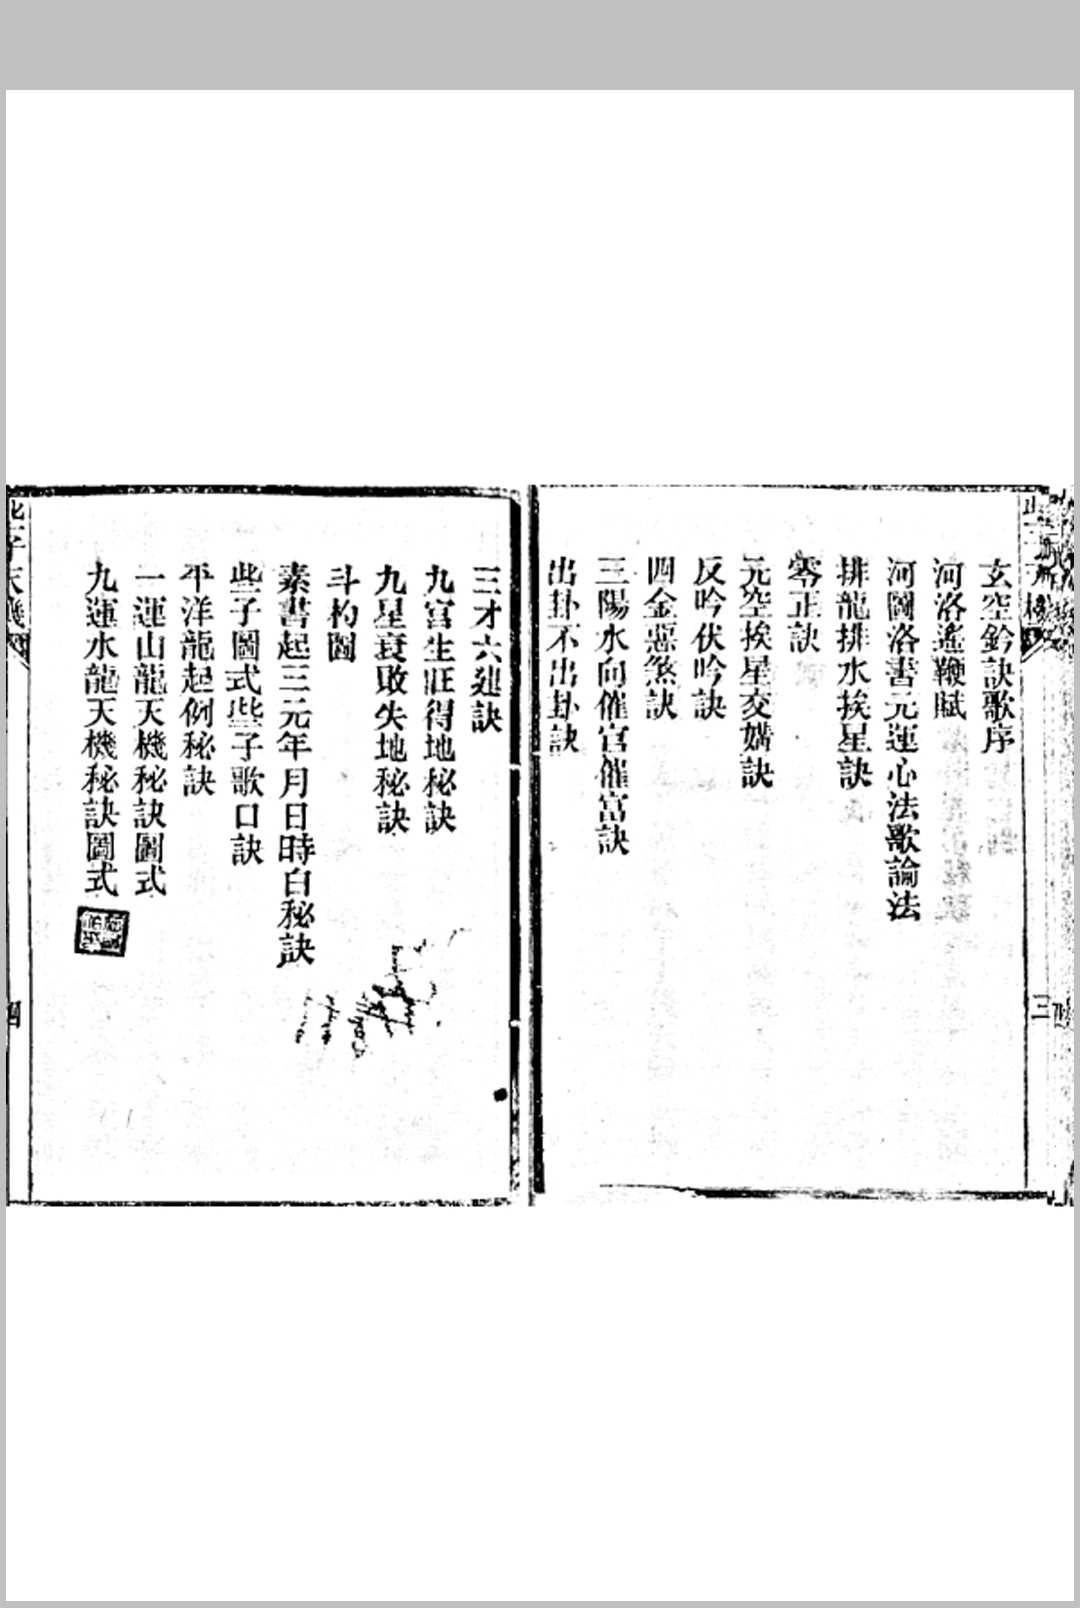 玄空鈐訣歌序
河洛遙鞭賦
河圖洛書元運心法歌論法
排龍排水挨星訣
零正訣
元空挨星交媾訣
反吟伏吟訣
四金惡煞訣
三陽水向催官催富訣
出卦不出卦訣
三
三才六建訣
九宮生旺得地秘訣
九星衰敗失地秘訣
斗杓圖
素書起三元年月日時白秘訣
些子圖式些子歌口訣
平洋龍起例秘訣
一運山龍天機秘訣圖式
九運水龍天機秘訣圖式
些子天機
四